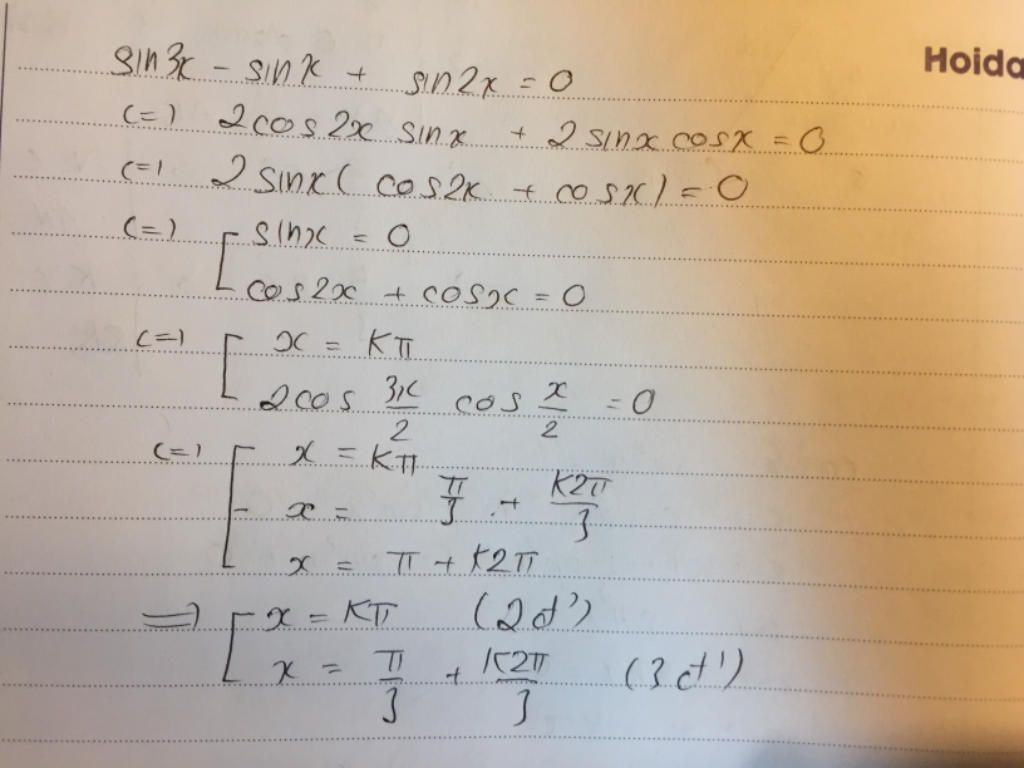 Hoida
sin3x - sinx + sin2x = 0
(=) 2cos2x sinx + 2sinx cosx = 0
(=) 2sinx( cos2x + cosx) = 0
(=) [ sinx = 0
cos2x + cosx = 0
(=) [ x = Kπ
2cos 3x/2 cos x/2 = 0
(=) [ x = Kπ
x = π/3 + K2π/3
x = π + K2π
=) [ x = Kπ (2đ')
x = π/3 + K2π/3 (3đ')